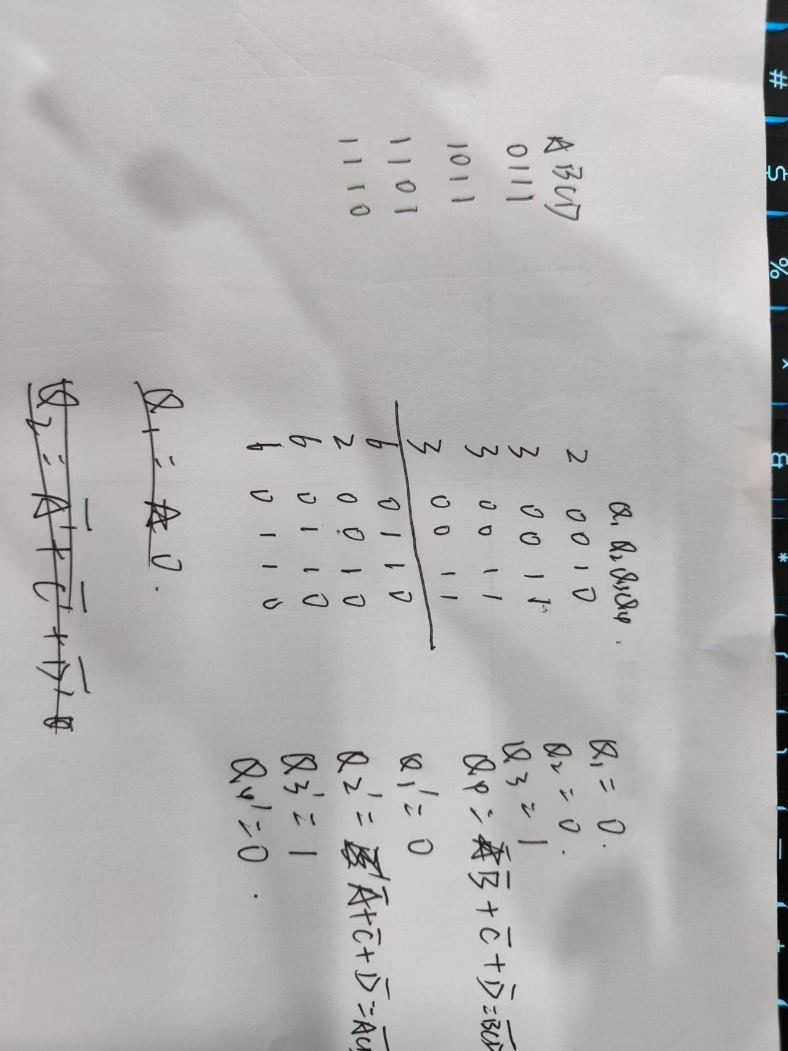 A B C D
0 1 1 1
1 0 1 1
1 1 0 1
1 1 1 0
Q₁ Q₂ Q₃ Q₄
2 0 0 1 0
3 0 0 1 1
3 0 0 1 1
3 0 0 1 1
6 0 1 1 0
2 0 0 1 0
6 0 1 1 0
6 0 1 1 0
Q₁ = 0
Q₂ = 0.
Q₃ = 1
Q₄ = B̅ + C̅ + D̅ =
Q₁' = 0
Q₂' = A̅ + C̅ + D̅ =
Q₃' = 1
Q₄' = 0.
Q₁ = 0.
Q₂ = A̅ + C̅ + D̅
# $ % ^ & * ( ) _ +